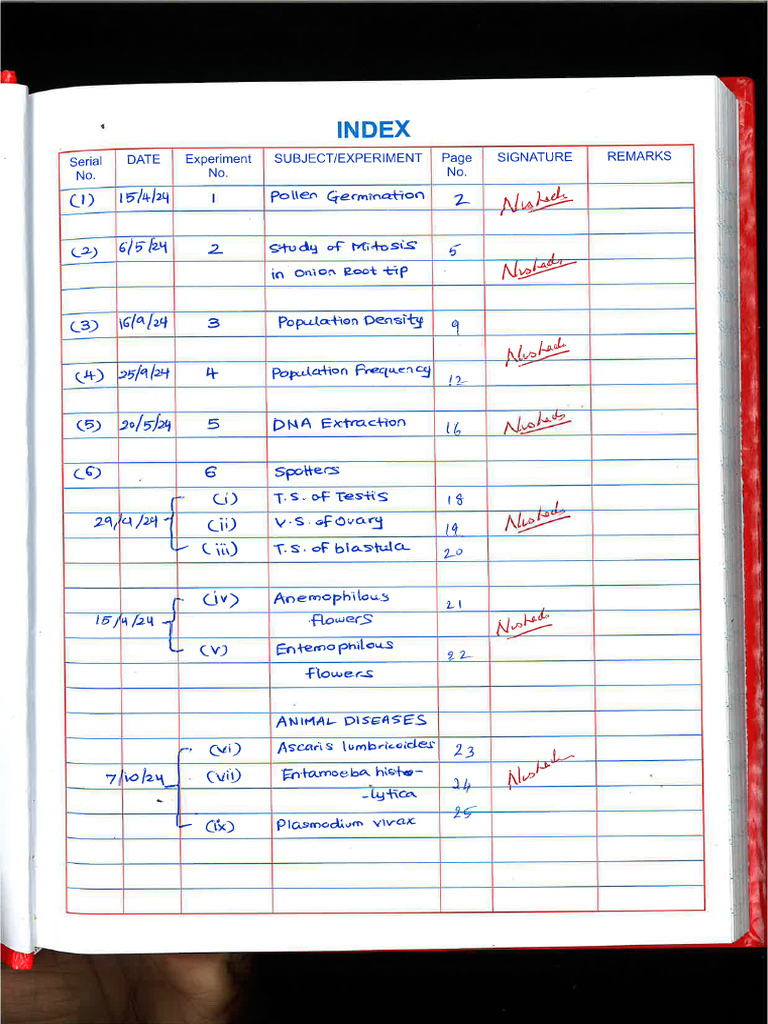 INDEX
Serial No. DATE Experiment No. SUBJECT/EXPERIMENT Page No. SIGNATURE REMARKS
(1) 15/4/24 1 Pollen Germination 2 Nushad
(2) 6/5/24 2 Study of Mitosis 5
in Onion Root tip Nushad
(3) 16/9/24 3 Population Density 9
Nushad
(4) 25/9/24 4 Population Frequency 12
(5) 20/5/24 5 DNA Extraction 16 Nushad
(6) 6 Spotters
(i) T.S. of Testis 18
29/4/24 (ii) V.S. of Ovary 19 Nushad
(iii) T.S. of blastula 20
(iv) Anemophilous 21
15/4/24 flowers Nushad
(v) Entemophilous 22
flowers
ANIMAL DISEASES
(vi) Ascaris lumbricoides 23
7/10/24 (vii) Entamoeba histo- 24 Nushad
-lytica
(ix) Plasmodium vivax 25